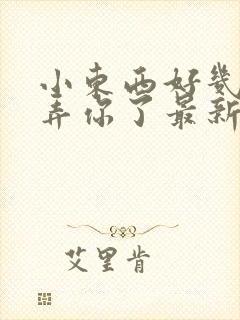 小东西好几
弄你了最新
艾里肯